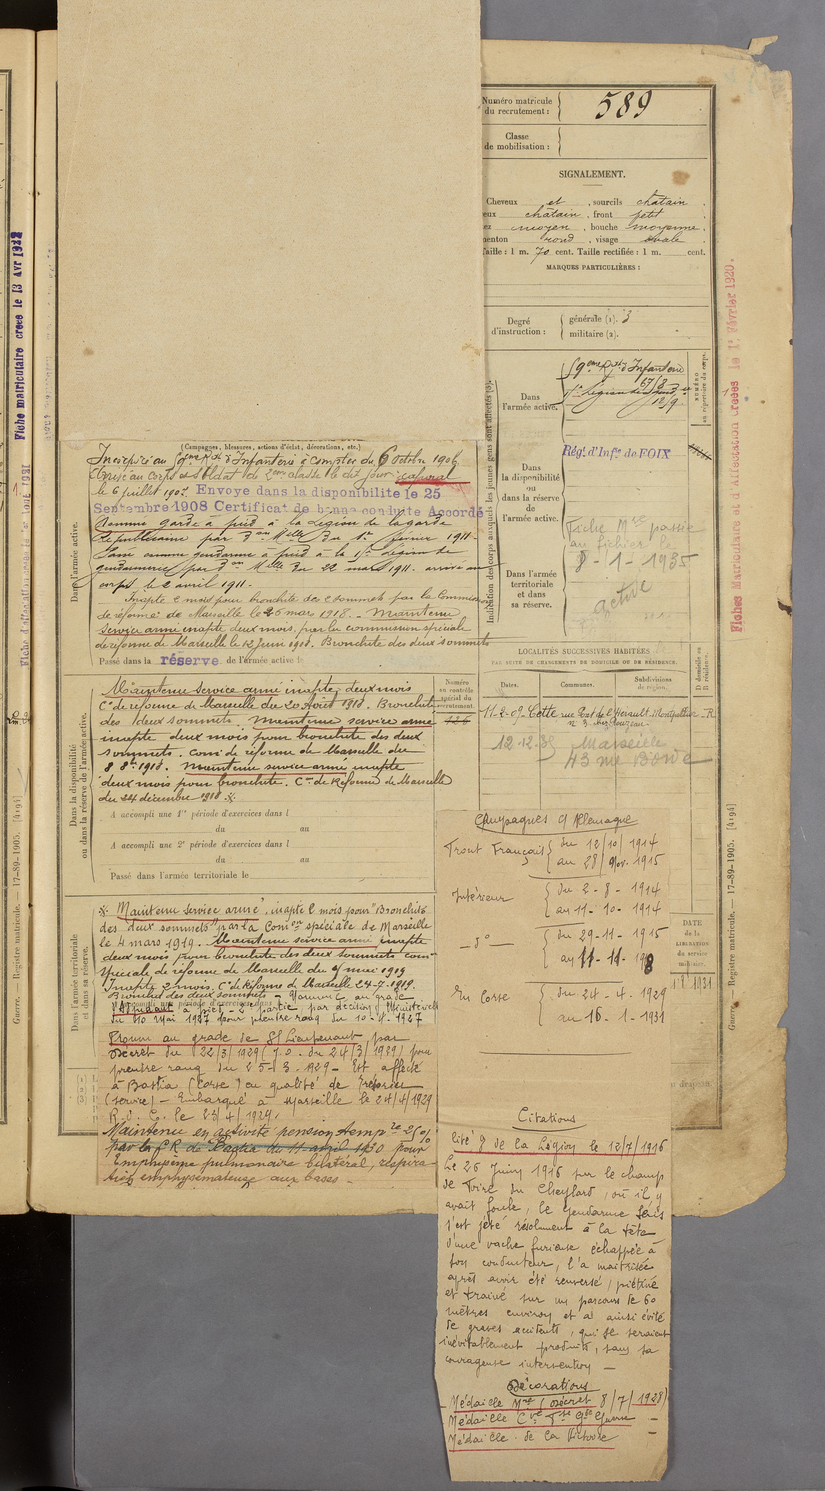 Numéro matricule
du recrutement :
589
Classe
de mobilisation :
SIGNALEMENT.
Cheveux et , sourcils chatain
eux chatain , front petit
ez moyen , bouche moyenne
menton rond , visage ovale
Taille : 1 m. 70 cent. Taille rectifiée : 1 m. cent.
MARQUES PARTICULIÈRES :
Degré
d'instruction :
générale (1). 3
militaire (2).
Indication des corps auxquels les jeunes gens sont affectés
Dans
l'armée active.
d'Infanterie
NUMÉRO
au répertoire du corps.
Dans
la disponibilité
ou dans la réserve
de
l'armée active.
Régt d'Infie de FOIX
Fiche Mle passée
au fichier le
8-1-1935
Active
Dans l'armée
territoriale
et dans
sa réserve.
LOCALITÉS SUCCESSIVES HABITÉES
PAR SUITE DE CHANGEMENTS DE DOMICILE OU DE RÉSIDENCE.
Dates.
Communes.
Subdivisions
de région.
D domicile ou
R résidence.
11-2-09. Cette rue Port de l'Hérault. Montpellier R
12-12-35 Marseille
DATE
de la
LIBÉRATION
du service
militaire.
Fiche matriculaire créée le 13 Avr 1932
Fiches Matriculaire et d'Affectation créées le 1er Février 1920.
Guerre. — Registre matricule. — 17-89-1905. [4194]
Guerre. — Registre matricule. — 17-89-1905. [4194]
(Campagnes, blessures, actions d'éclat, décorations, etc.)
Dans l'armée active.
Incorporé au d'Infanterie à compter du 6 Octobre 1906
Arrivé au Corps et soldat de 2eme classe le dit jour caporal
le 6 juillet 1907. Envoyé dans la disponibilité le 25
Septembre 1908 Certificat de bonne conduite Accordé
Nommé garde à pied à la Légion de la garde
Républicaine par Don Mlle du 1er février 1911.
Passé comme gendarme à pied à la Légion de
gendarmerie par Don Mlle du 22 mars 1911. arrivé au
corps le 2 avril 1911.
Inapte 2 mois pour bronchite des 2 sommets par la Commission
de réforme de Marseille le 26 mars 1918. Maintenu
service armé inapte deux mois par la commission spéciale
de réforme de Marseille le 12 Juin 1918. Bronchite des deux sommets
Passé dans la réserve de l'armée active le
Numéro
au contrôle
spécial du
recrutement.
Dans la disponibilité
ou dans la réserve de l'armée active.
Maintenu service armé inapte deux mois
Con de réforme de Marseille du 20 Août 1918. Bronchite
des deux sommets. Maintenu service armé
inapte deux mois pour bronchite des deux
sommets. Comon de réforme de Marseille du
8 8bre 1918. Maintenu service armé inapte
deux mois pour bronchite. Con de Réforme de Marseille
du 24 décembre 1918. ※
A accompli une 1re période d'exercices dans l
du au
A accompli une 2e période d'exercices dans l
du au
Passé dans l'armée territoriale le
Dans l'armée territoriale
et dans sa réserve.
※ Maintenu service armé, inapte 2 mois pour "Bronchite
des deux sommets" par la Comon spéciale de Marseille
le 4 mars 1919. Maintenu service armé inapte
deux mois pour bronchite des deux sommets com-
spéciale de réforme de Marseille du 9 mai 1919
Inapte 2 mois. Con de Réforme de Marseille 24-7-1919.
Bronchite des deux sommets - Nommé au grade
d'Adjudant à pied - 2e partie par décision Ministérielle
du 10 Mai 1927 pour prendre rang du 10-5-1927
Promu au grade de S/Lieutenant par
Décret du 22/3/1929 (J.O. du 24/3/1929) pour
prendre rang du 25-3-1929 - Est affecté
à Bastia (Corse) en qualité de trésorier
(service) - Embarqué à Marseille le 24/4/1929
le 24/4/1929.
Maintenu en activité pension tempre 25%
par la C.R. de Bastia du 11 avril 1930 pour
Emphysème pulmonaire bilatéral, respira-
tion emphysémateuse aux bases -
Campagnes c/ Allemagne
Front Français { du 12/10/1914
au 28/Nov. 1915
Intérieur { du 2-8-1914
au 11-10-1914
- do - { du 29-11-1915
au 11-11-1918
En Corse { du 24-4-1929
au 16-1-1931
Citations
Cité O de la Légion le 12/7/1916
Le 26 Juin 1916 sur le champ
de foire du Cheylard, où il y
avait foule, le Gendarme
s'est jeté résolument à la tête
d'une vache furieuse échappée à
son conducteur, l'a maitrisée
après avoir été renversé, piétiné
et trainé sur un parcours de 60
mètres environ et a ainsi évité
de graves accidents, qui se seraient
inévitablement produits, sans sa
courageuse intervention -
Décorations
Médaille Mre (Décret 8/7/1928)
Médaille Cve Fse Gde Guerre -
Médaille de la Victoire -